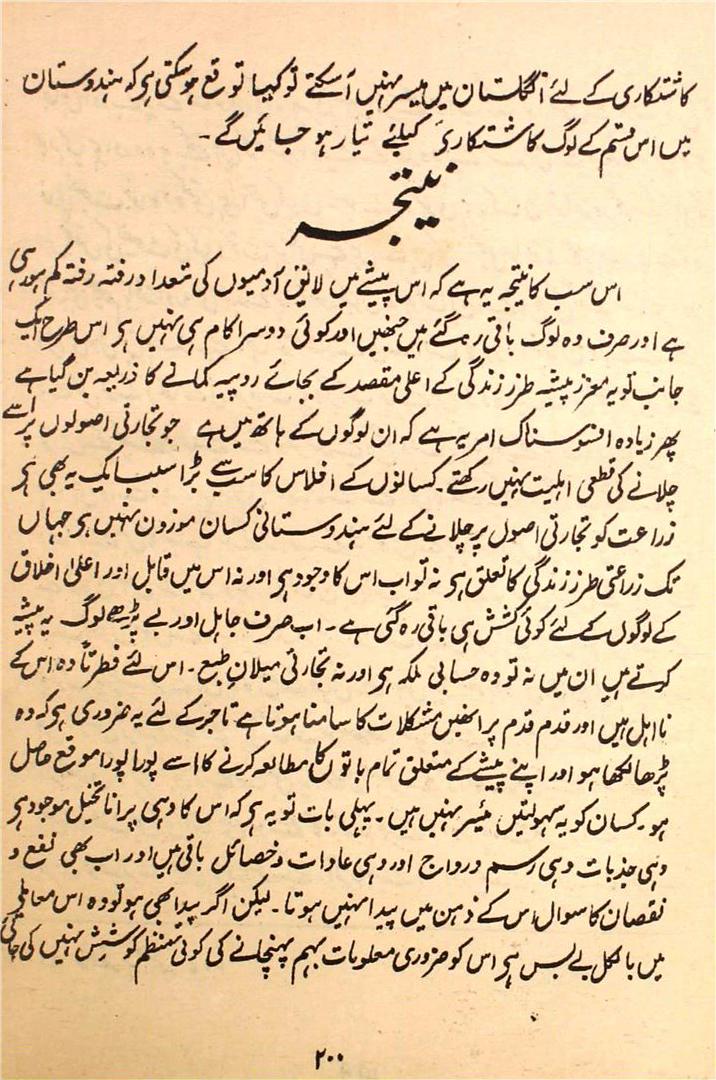 کاشتکاری کے لئے انگلستان میں میسر نہیں آسکتے تو کیسا توقع ہوسکتی ہی کہ ہندوستان
میں اس قسم کے لوگ کاشتکاری کیلئے تیار ہو جائیں گے۔
نتیجہ
اس سب کا نتیجہ یہ ہے کہ اس پیشے میں لایق آدمیوں کی تعداد رفتہ رفتہ کم ہورہی
ہے اور صرف وہ لوگ باقی رہ گئے ہیں جنھیں اور کوئی دوسرا کام ہی نہیں ہی اس طرح ایک
جانب تو یہ معزز پیشہ طرز زندگی کے اعلی مقصد کے بجائے روپیہ کمانے کا ذریعہ بن گیا ہے
پھر زیادہ افسوسناک امر یہ ہے کہ ان لوگوں کے ہاتھ میں ہے جو تجارتی اصولوں پر اسے
چلانے کی قطعی اہلیت نہیں رکھتے۔ کسانوں کے افلاس کا سب سے بڑا سبب ایک یہ بھی ہی
زراعت کو تجارتی اصول پر چلانے کے لئے ہندوستانی کسان موزون نہیں ہی جہاں
تک زراعتی طرز زندگی کا تعلق ہی نہ تو اب اس کا وجود ہی اور نہ اس میں قابل اور اعلیٰ اخلاق
کے لوگوں کے لئے کوئی کشش ہی باقی رہ گئی ہے۔ اب صرف جاہل اور بے پڑھے لوگ یہ پیشہ
کرتے ہیں ان میں نہ تو وہ حسابی ملکہ ہی اور نہ تجارتی میلانِ طبع۔ اس لئے فطرتاً وہ اس کے
نااہل ہیں اور قدم قدم پر انھیں مشکلات کا سامنا ہوتا ہے تاجر کے لئے یہ ضروری ہی کہ وہ
پڑھا لکھا ہو اور اپنے پیشے کے متعلق تمام باتوں کا مطالعہ کرنے کا اسے پورا پورا موقع حاصل
ہو۔ کسان کو یہ سہولتیں میسر نہیں ہیں۔ پہلی بات تو یہ ہی کہ اس کا وہی پرانا تخیل موجود ہی
وہی جذبات وہی رسم ورواج اور وہی عادات وخصائل باقی ہیں اور اب بھی نفع و
نقصان کا سوال اس کے ذہن میں پیدا نہیں ہوتا۔ لیکن اگر پیدا بھی ہو تو وہ اس معاملے
میں بالکل بے بس ہی اس کو ضروری معلومات بہم پہنچانے کی کوئی منظم کوشش نہیں کی جاتی
۲۰۰